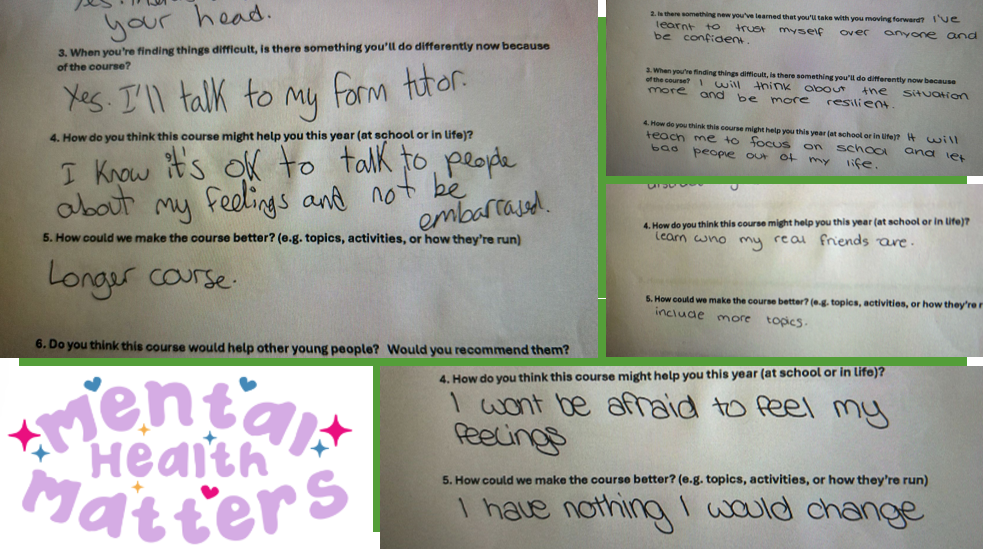 your head.
3. When you're finding things difficult, is there something you'll do differently now because
of the course?
Yes. I'll talk to my form tutor.
4. How do you think this course might help you this year (at school or in life)?
I know it's ok to talk to people
about my feelings and not be
embarrased.
5. How could we make the course better? (e.g. topics, activities, or how they're run)
Longer course.
6. Do you think this course would help other young people? Would you recommend them?
2. Is there something new you've learned that you'll take with you moving forward? I've
learnt to trust myself over anyone and
be confident.
3. When you're finding things difficult, is there something you'll do differently now because
of the course? I will think about the situation
more and be more resilient.
4. How do you think this course might help you this year (at school or in life)? It will
teach me to focus on school and let
bad people out of my life.
4. How do you think this course might help you this year (at school or in life)?
learn who my real friends are.
5. How could we make the course better? (e.g. topics, activities, or how they're r
include more topics.
Mental
Health
Matters
4. How do you think this course might help you this year (at school or in life)?
I wont be afraid to feel my
feelings
5. How could we make the course better? (e.g. topics, activities, or how they're run)
I have nothing I would change